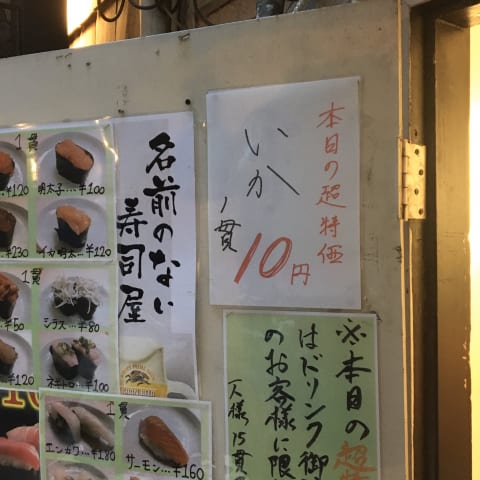 本日の超特価
いか
1貫
10円
名前のない
寿司屋
※本日の超特
はドリンク御
のお客様に限
1人様15貫
1貫
¥120
明太子…¥100
¥230
イカ明太…¥120
1貫
¥50
シラス…¥80
¥120
ネギトロ…¥100
1貫
エンガワ…¥180
サーモン…¥160